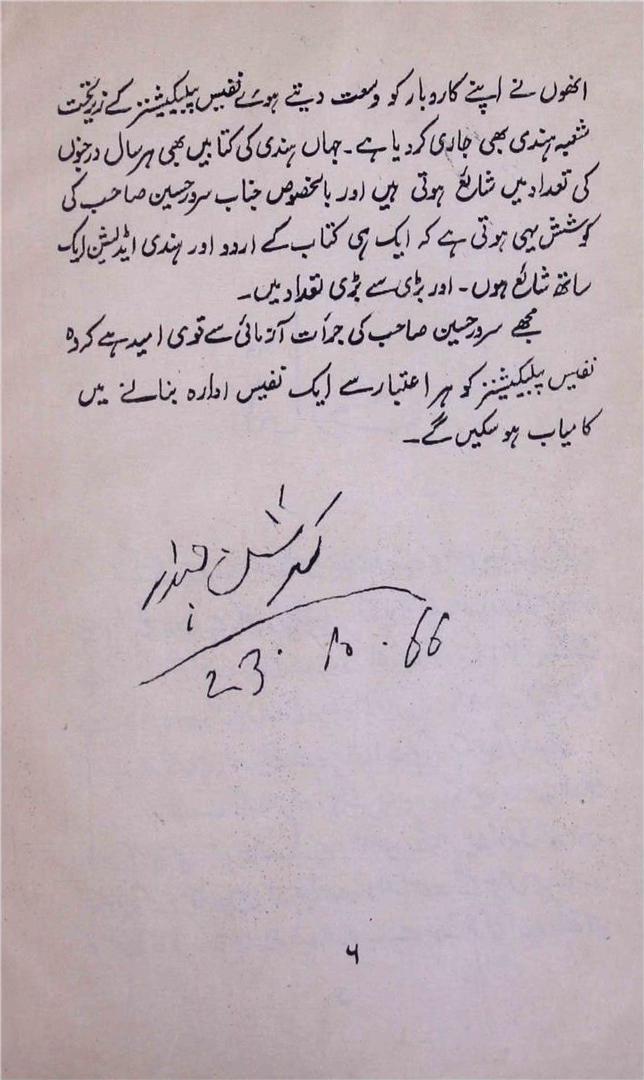 انھوں نے اپنے کاروبار کو وسعت دیتے ہوئے نفیس پبلیکیشنز کے زیر تحت
شعبہ ہندی بھی جاری کردیا ہے۔ جہاں ہندی کی کتابیں بھی ہر سال درجنوں
کی تعداد میں شایع ہوتی ہیں اور بالخصوص جناب سرور حسین صاحب کی
کوشش یہی ہوتی ہے کہ ایک ہی کتاب کے اردو اور ہندی ایڈیشن ایک
ساتھ شائع ہوں۔ اور بڑی سے بڑی تعداد میں۔
مجھے سرور حسین صاحب کی جرأت آزمائی سے قوی امید ہے کہ وہ
نفیس پبلیکیشنز کو ہر اعتبار سے ایک نفیس ادارہ بنانے میں
کامیاب ہو سکیں گے۔
کرشن چندر
23. 10. 66
۶